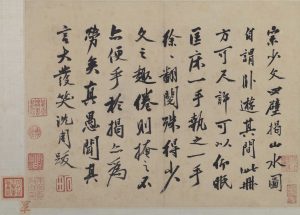 宗少文四壁揭山水圖
自謂卧遊其間此冊
方可尺許可以仰眠
匡床一手執之一手
徐徐翻閱殊得少
文之趣倦則掩之不
亦便乎於揭亦為
勞矣真愚聞其
言大發笑沈周跋